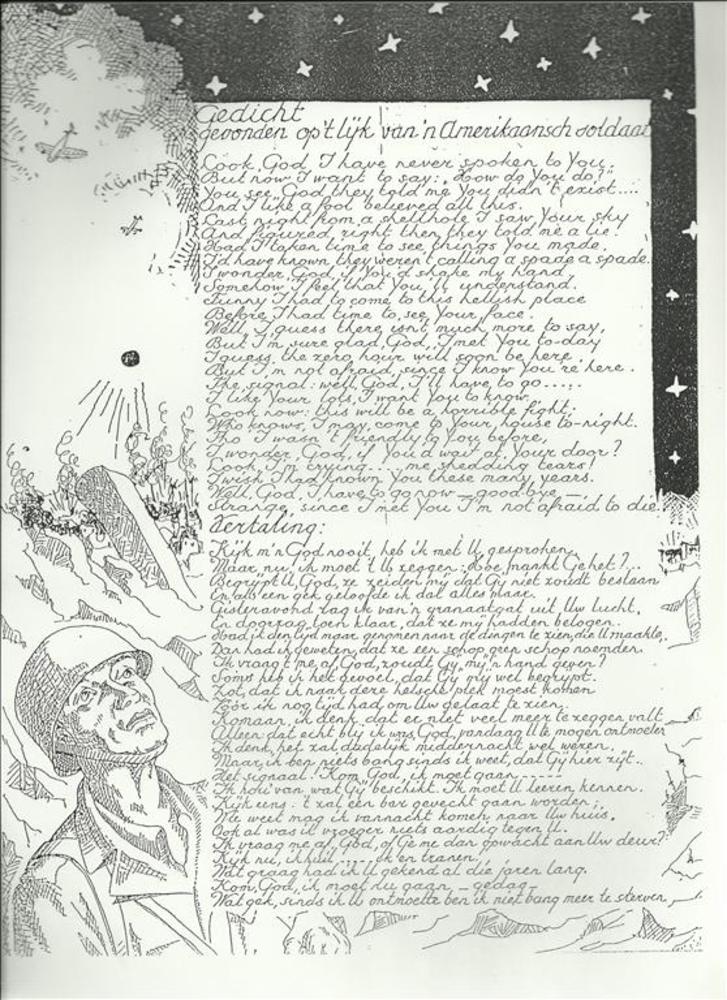 Gedicht
gevonden op't lijk van 'n Amerikaansch soldaat
Look, God, I have never spoken to You.
But now I want to say: "How do You do?"
You see, God, they told me You didn't exist....
And I like a fool believed all this.
Last night from a shellhole I saw Your sky
And figured, right then they told me a lie.
Had I taken time to see things You made,
I'd have known they weren't calling a spade a spade.
I wonder, God, if You'd shake my hand,
Somehow I feel that You'll understand.
Funny I had to come to this hellish place
Before I had time to see Your face.
Well, I guess there isn't much more to say,
But I'm sure glad, God, I met You to-day
I guess the zero hour will soon be here,
But I'm not afraid, since I know You're here.
The signal: well, God, I'll have to go.....
I like Your lots, I want You to know.
Look now: this will be a horrible fight;
Who knows, I may come to Your house to-night.
Tho' I wasn't friendly to You before,
I wonder, God, if You'd wait at Your door?
Look, I'm crying.... me shedding tears!
I wish I had known You these many years.
Well, God, I have to go now – good bye –
Strange, since I met You I'm not afraid to die.
Vertaling:
Kijk m'n God nooit, heb ik met U gesproken,
Maar nu, ik moet 't U zeggen: Hoe maakt Ge het?...
Begrijpt U, God, ze zeiden mij dat Gy niet zoudt bestaan
En als een gek geloofde ik dat alles maar.
Gisteravond zag ik van 'n granaatgat uit, Uw lucht,
En doorzag toen klaar, dat ze mij hadden belogen.
Had ik den tijd maar genomen naar de dingen te zien, die U maakte,
Dan had ik geweten, dat ze een schop geen schop noemden.
Ik vraag 't me af, God, zoudt Gy, mij 'n hand geven?
Soms heb ik het gevoel, dat Gy mij wel begrijpt.
Zot, dat ik naar deze helsche plek moest komen
Vóór ik nog tijd had, om Uw gelaat te zien.
Komaan, ik denk, dat er niet veel meer te zeggen valt
Alleen: dat echt blij ik was, God, vandaag U te mogen ontmoeten
Ik denk, het zal dadelijk middernacht wel wezen.
Maar, ik ben niets bang sinds ik weet, dat Gy hier zijt.
Het signaal! Kom, God, ik moet gaan -----
Ik hou van, wat Gy beschikt. Ik moet U leeren kennen.
Kijk eens: 't zal een bar gevecht gaan worden;
Wie weet mag ik vannacht komen, naar Uw huis.
Ook al was ik vroeger niets aardig tegen U.
Ik vraag me af, God, of Ge me dan opwacht aan Uw deur?
Kijk nu, ik huil .... ik en tranen.
Wat graag had ik U gekend al die jaren lang.
Kom, God, ik moet nu gaan, – gedag –
Wat gek, sinds ik U ontmoette ben ik niet bang meer te sterven.